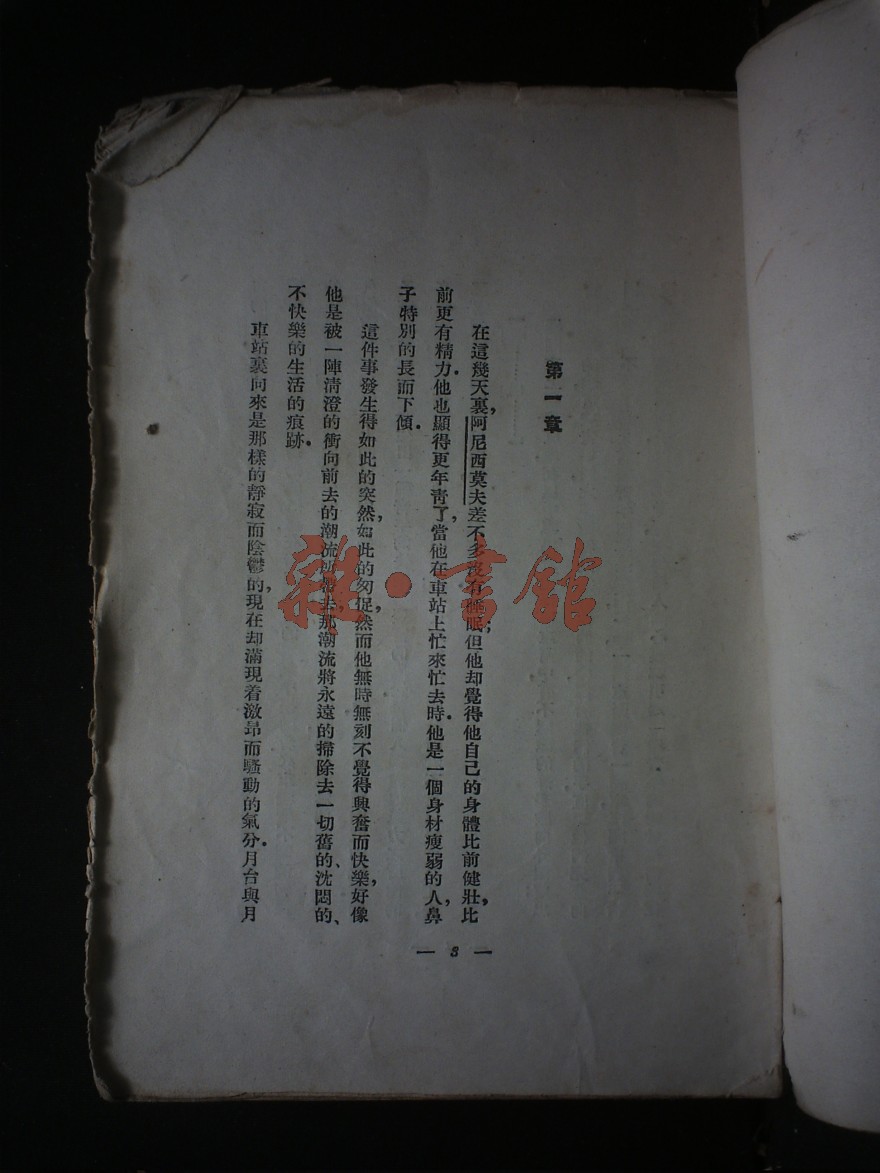 第一章
在這幾天裏，阿尼西莫夫差不多沒有睡眠；但他却覺得他自己的身體比前健壯，比
前更有精力．他也顯得更年靑了，當他在車站上忙來忙去時．他是一個身材瘦弱的人，鼻
子特別的長而下傾．
這件事發生得如此的突然，如此的匆促，然而他無時無刻不覺得興奮而快樂，好像
他是被一陣淸澄的衝向前去的潮流所帶去，那潮流將永遠的掃除去一切舊的、沈悶的、
不快樂的生活的痕跡．
車站裏向來是那樣的靜寂而陰鬱的，現在却滿現着激昂而騷動的氣分．月台與月
— 3 —
雜·書館